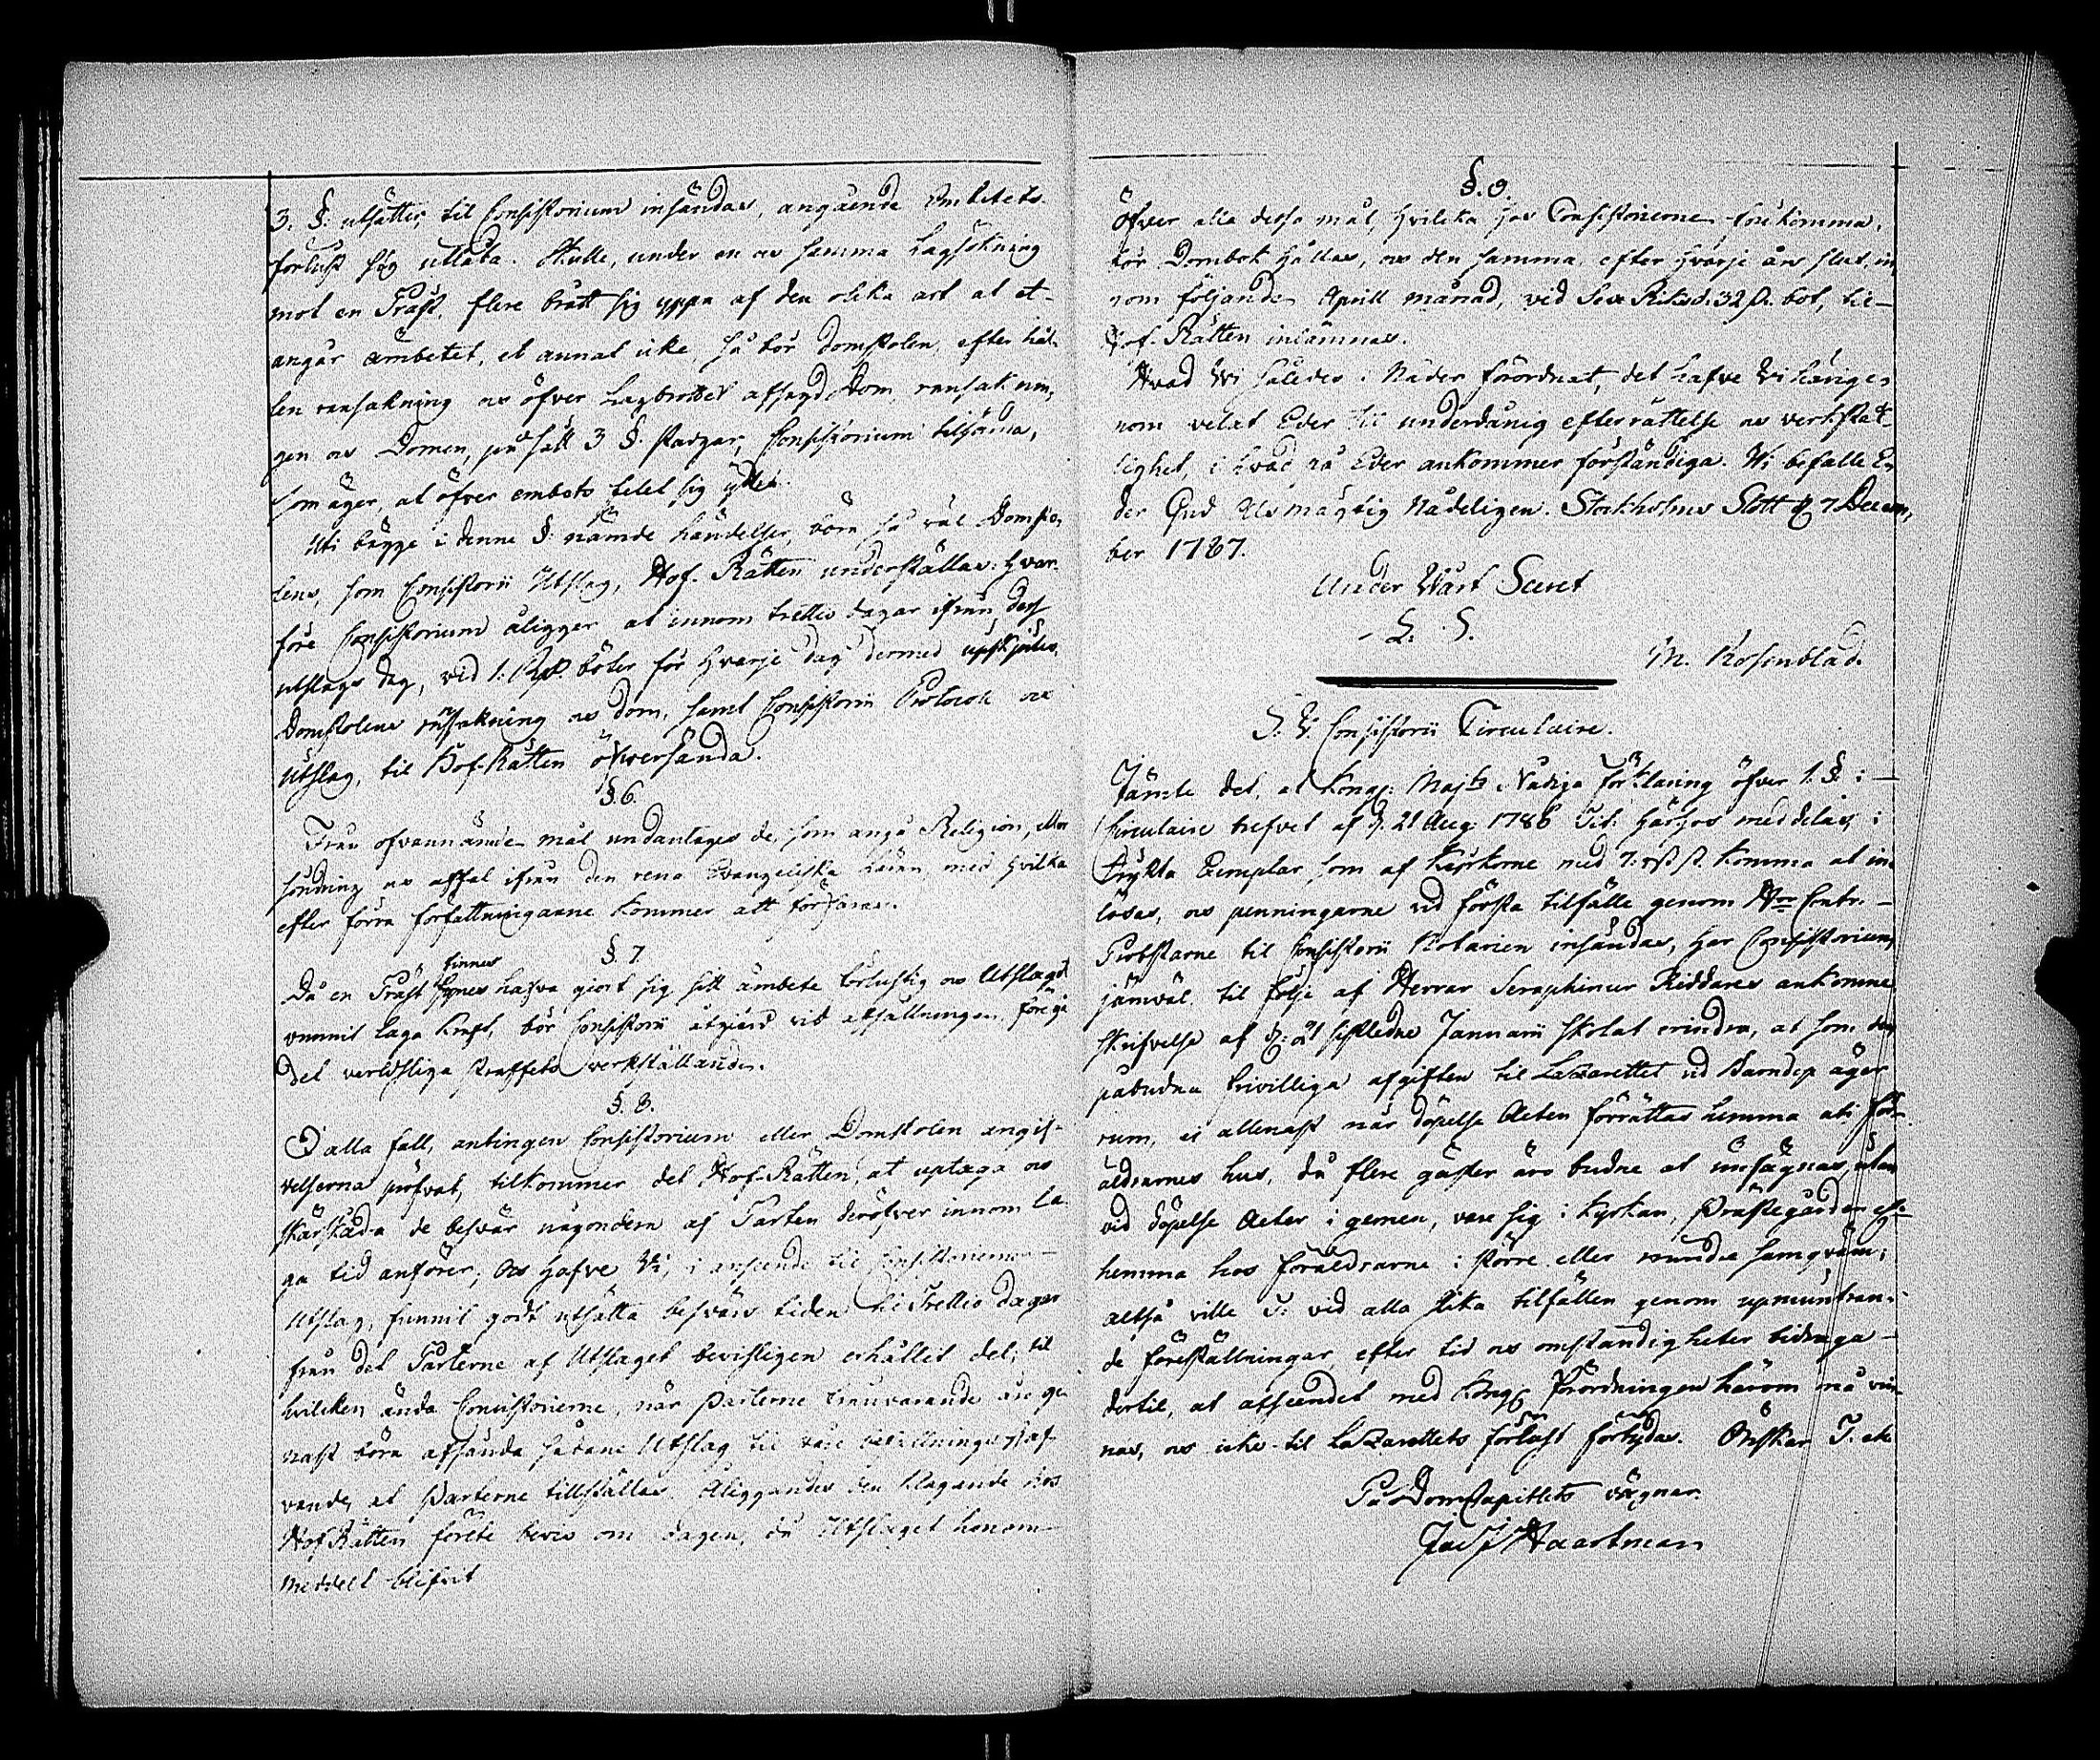 3. §. utsätter, til Consistorium insändas, angående Embetets
förlust sig utlåta. Skulle, under en os samma Lagsökning
mot en Präst, flere brått sig yppa af den olika art at et
angår ämbetet, et annat icke, så bör domstolen, efter hål-
len ransakning os öfver Lagbrottet afsagd Dom, ransaknin,
gen os Domen, på sätt 3 §. stadgar, Consistorium tilsända,
som äger, at öfver embets felet sig yttra.
Uti bägge i denne §. nämde händelser, böra så väl Domsto,
lens, som Consistorii Utslag, Hof-Rätten underställas: hvar-
före Consistorium åligger at innom trettio dagar ifrån dess
utslags dag, vid 1. Rd. böter för hvarje dag dermed upskjutes,
Domstolens ransakning os dom, samt Consistorii Protocoll os
Utslag, til Hof-Rätten öfwersända.
§. 6.
Från ofvannämde mål undantages de, som angå Religion, eller
söndring os affal ifrån den rena Evangeliska Läran, med hvilka
efter förra författningarne kommer att förfaras.
§. 7
finnes
Då en Präst synes hafva giort sig sitt ämbete förlustig os Utslaget
vunnit laga kraft, bör Consistorii åtgiärd vid afsättningen föregå
det verldsliga straffets verkställande.
§. 8.
I alla fall, antingen Consistorium eller Domstolen angif-
velserna pröfvat, tilkommer det Hof-Rätten, at uptaga os
skärskåda de besvär någondera af Parten deröfver innom la-
ga tid anförer; Os hafve Vi, i anseende til Consistoriernes
Utslag, funnit godt utsätta besvärs tiden til Trettio dagar
från det Parterne af Utslaget bevisligen erhållit del; til
hvilken ända Consistorierne, när parterne frånvarande äro ge-
nast böra afsända sådane Utslag til våre befallningshaf-
vande, at Parterne tillställas. Åliggandes den klagande hos
HofRätten förete bevis om dagen, då Utslaget honom
meddelt blifvit
§. 9.
Öfver alla dessa mål, hvilka hos Consistorierne förekomma,
bör Dombok hållas, os den samma, efter hvarje års slut, in
nom följande Aprill månad, vid Sex Riksd. 32 s. bot, til
Hof-Rätten inlämnas.
Hvad Wi således i Nåder förordnat, det hafve Wi härige-
nom velat Eder til underdånig efterrättelse os verkstäl-
lighet, i hvad på Eder ankommer förständiga. Wi befalle E-
der Gud Alsmägtig Nådeligen. Stockholms Slott d. 7 Decem,
ber 1787.
Under Wårt Secret
L. S.
M. Rosenblad.
S. V. Consistorii Circulaire.
Jämte det, at Kongl: Maj:ts Nådiga förklaring öfver 1. §. i
Circulaire brefvet af d. 21 Aug: 1786 Tit: härhos meddelas, i
tryckta Exemplar, som af kyrkorne med 7. rst. komma at in-
lösas, os penningarne vid första tilfälle genom Hrr Contr.
Probstarne til Consistorii Notarien insändas, har Consistorium
jämväl til följe af Herrar Seraphimer Riddares ankomne
skrifvelse af d: 21 sistledne Januarii skolat erindra, at som den
påbudna frivilliga afgiften til Lazarettet vid Barndop äger
rum, ei allenast när döpelse Acten förrättas hemma uti För-
äldrarnes hus, då flere gäster äro budne at infägnas, utan
vid döpelse Acter i gemen, vare sig i Kyrkan, Prästegården el:
hemma hos föräldrarne i större eller mindre samqväm;
altså ville T: vid alla slika tilfällen genom upmuntran-
de föreställningar, efter tid os omständigheter bidraga
dertil, at afseendet med Kongl: Förordningen härom må vin-
nas, os icke til Lazarettets förlust förbydas. Önskar T. etc
På DomCapitlets vägnar.
Jac J Haartman